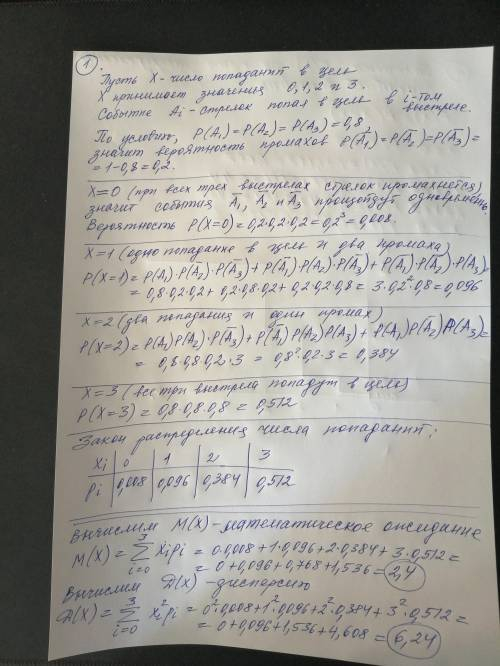 1.
Пусть X - число попаданий в цель
X принимает значения 0, 1, 2 и 3.
Событие Ai - стрелок попал в цель в i-том выстреле.
По условию, P(A₁) = P(A₂) = P(A₃) = 0,8
значит вероятность промахов P(A̅₁) = P(A̅₂) = P(A̅₃) =
= 1-0,8 = 0,2.
X=0 (при всех трех выстрелах стрелок промахнется)
значит события A̅₁, A̅₂ и A̅₃ произойдут одновремен.
Вероятность P(X=0) = 0,2·0,2·0,2 = 0,2³ = 0,008.
X=1 (одно попадание в цель и два промаха)
P(X=1) = P(A₁)·P(A̅₂)·P(A̅₃) + P(A̅₁)·P(A₂)·P(A̅₃) + P(A̅₁)·P(A̅₂)·P(A₃)
= 0,8·0,2·0,2 + 0,2·0,8·0,2 + 0,2·0,2·0,8 = 3·0,2²·0,8 = 0,096
X=2 (два попадания и один промах)
P(X=2) = P(A₁)P(A₂)·P(A̅₃) + P(A̅₁)P(A₂)P(A₃) + P(A₁)P(A̅₂)P(A₃) =
= 0,8·0,8·0,2·3 = 0,8²·0,2·3 = 0,384
X=3 (все три выстрела попадут в цель)
P(X=3) = 0,8·0,8·0,8 = 0,512
Закон распределения числа попаданий:
Xi 0 1 2 3
Pi 0,008 0,096 0,384 0,512
Вычислим M(X) - математическое ожидание
M(X) = 3 ∑ i=0 xipi = 0·0.008 + 1·0,096 + 2·0,384 + 3·0,512 =
= 0 + 0,096 + 0,768 + 1,536 = 2,4
Вычислим D(X) - дисперсию
D(X) = 3 ∑ i=0 xi²pi = 0²·0,008 + 1²·0,096 + 2²·0,384 + 3²·0,512 =
= 0 + 0,096 + 1,536 + 4,608 = 6,24